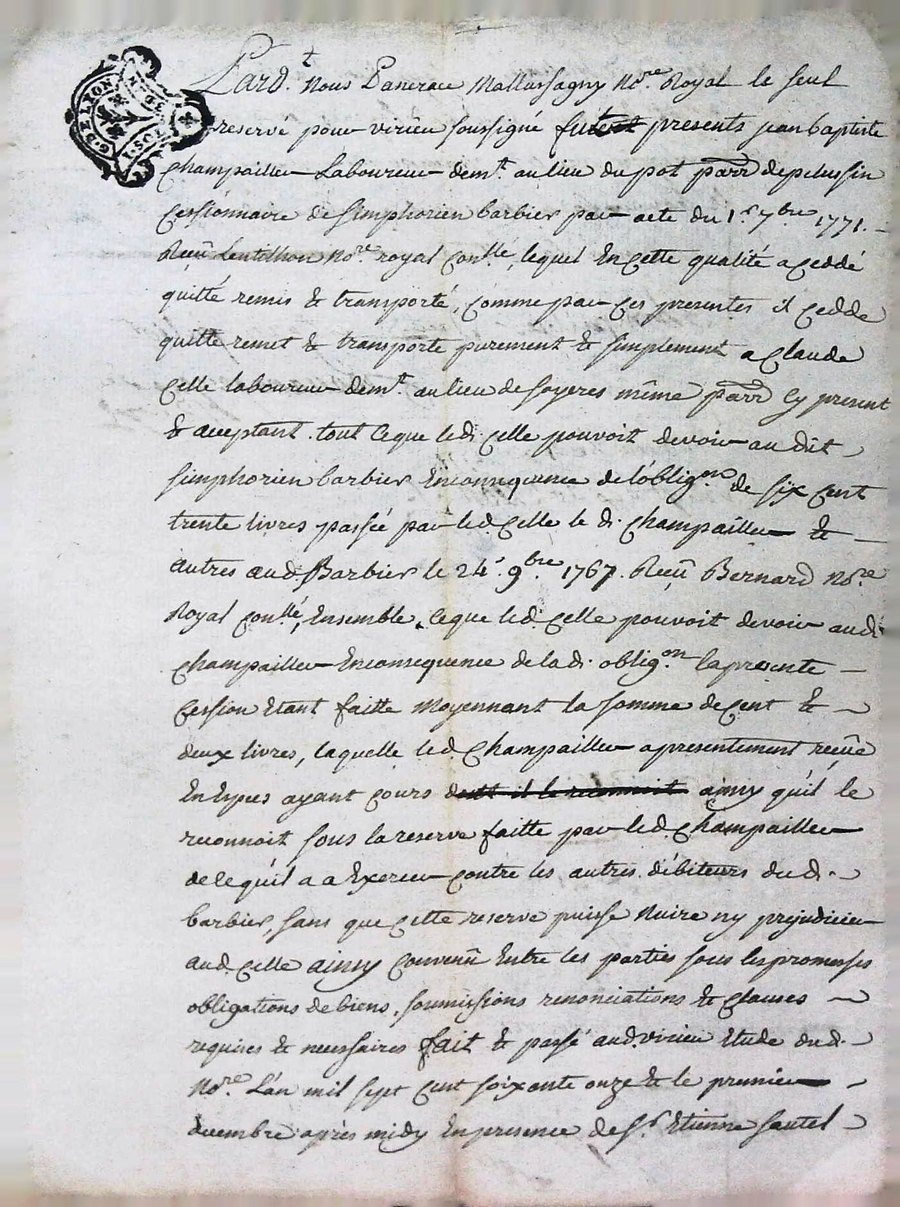 G. DE LYON
Pard.t Nous Pancrace Mallassagny No.re Royal le seul
reservé pour virieu soussigné fut present jean baptiste
Champailler Laboureur dem.t au lieu du pot parr depelussin
Cessionnaire de simphorien barbier par acte du 1.r 7bre 1771.
Reçu Lentillon No.re royal con.lle, lequel En cette qualité a ceddé
quitté remis & transporté, comme par ces presentes il cedde
quitte remet & transporte purement & simplement a Claude
Celle laboureur dem.t au lieu de soyeres même parr cy present
& acceptant. tout ceque led. Celle pouvoit devoir audit
simphorien barbier Enconsequence de l'oblig.on de six cent
trente livres passée par led. Celle le d. Champailler & 
autres aud. Barbier le 24.e 9.bre 1767. Reçu Bernard No.re
Royal con.llé, Ensemble, ceque led. Celle pouvoit devoir aud.
Champailler Enconsequence de lad. oblig.on lapresente
Cession Etant faitte Moyennant la somme de Cent &
deux livres, laquelle led. Champailler apresentement reçüe
En Espces ayant Cours dont il le reconnoit ainsy qu'il le
reconnoit sous la reserve faitte par led. Champailler
de ce qu'il a a Exercer contre les autres débiteurs dud.
barbier, sans que cette reserve puisse Nuire ny prejudicier
aud. Celle ainsy convenu Entre les parties sous les promesses
obligations de biens, soumissions renonciations & clauses
requises & necessaires fait & passé aud. virieu Etude dud.
No.re L'an mil sept cent soixante onze & le premier
decembre après midy En presence de S.r Etienne sautel